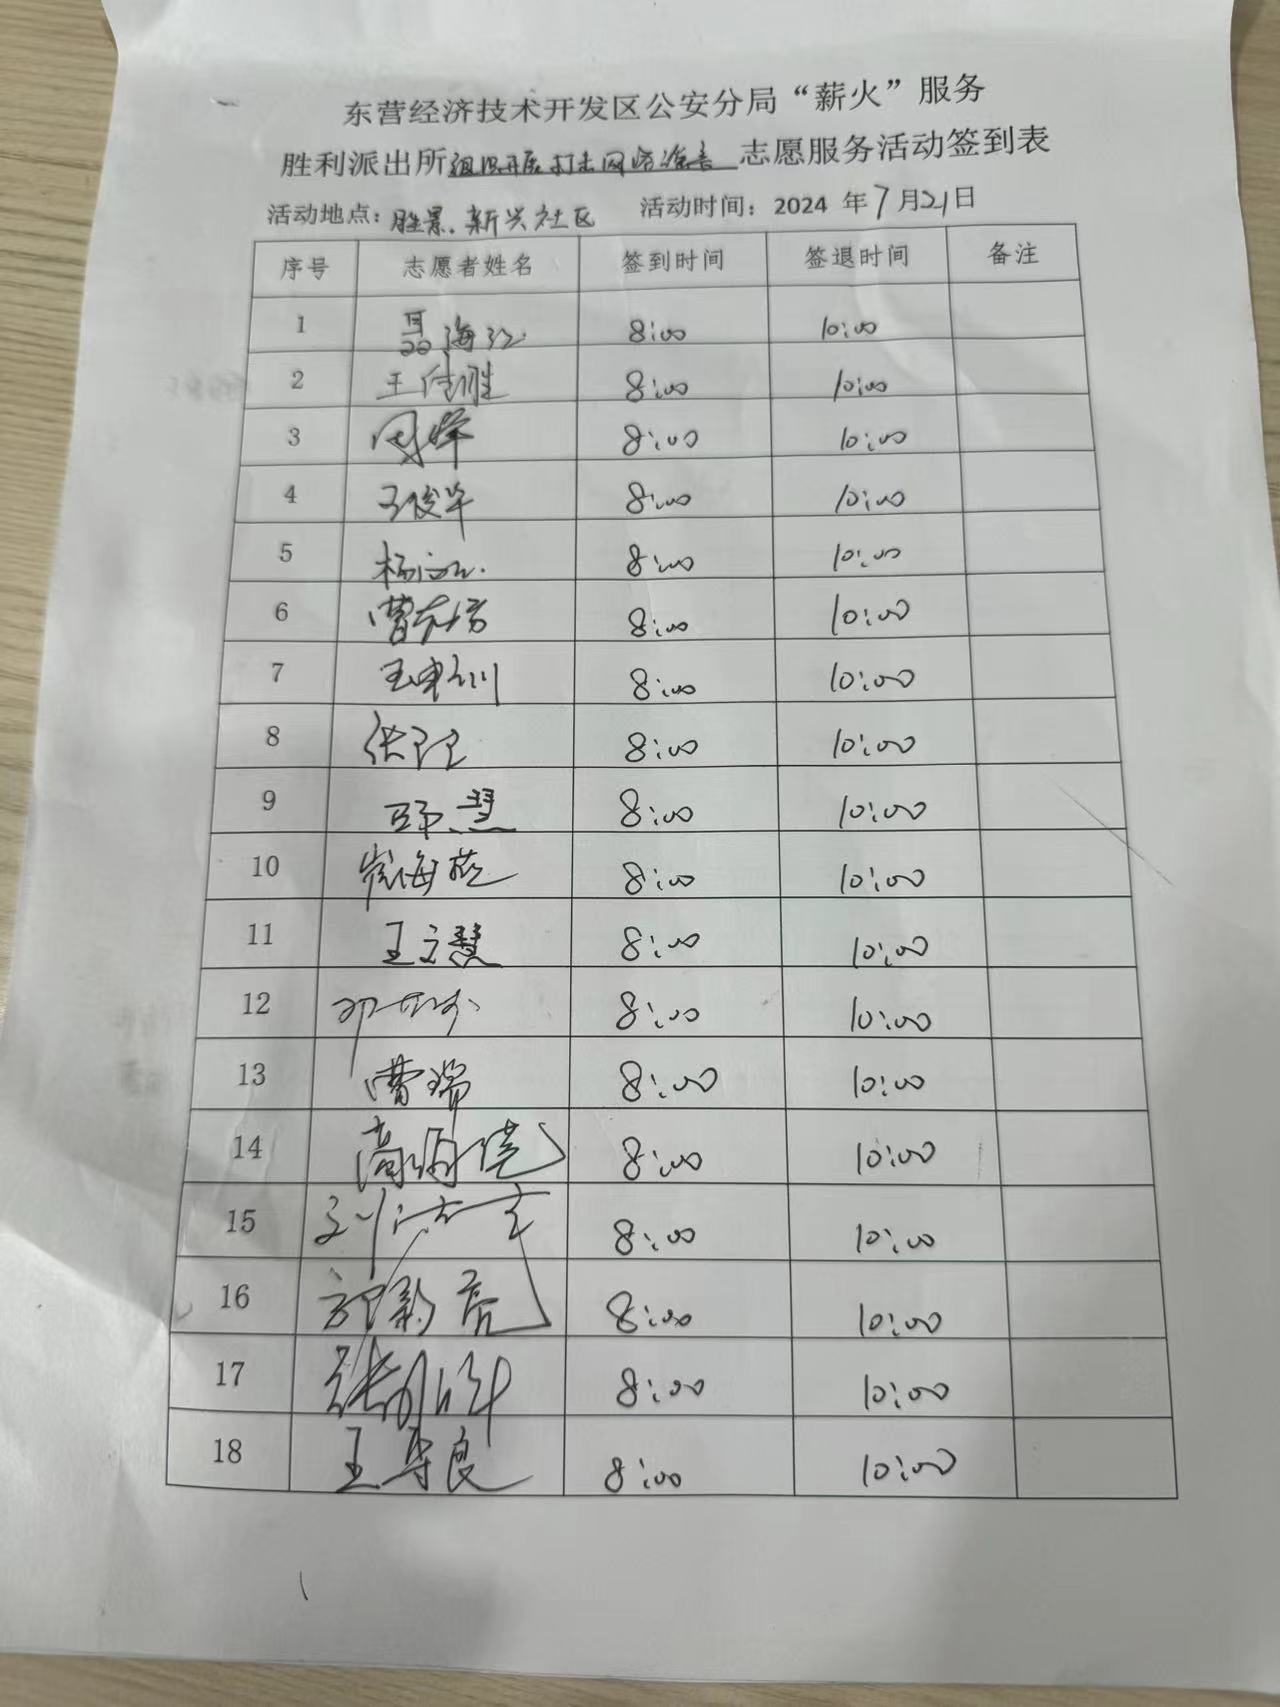 东营经济技术开发区公安分局“薪火”服务
胜利派出所组织开展打击网络谣言志愿服务活动签到表
活动地点：胜景、新兴社区 活动时间：2024 年7月21日
序号 志愿者姓名 签到时间 签退时间 备注
1 聂海江 8:00 10:00
2 王伟胜 8:00 10:00
3 周峰 8:00 10:00
4 王俊华 8:00 10:00
5 杨 8:00 10:00
6 曹东芳 8:00 10:00
7 8:00 10:00
8 张 8:00 10:00
9 慧 8:00 10:00
10 崔海燕 8:00 10:00
11 王文慧 8:00 10:00
12 邓 8:00 10:00
13 曹瑞 8:00 10:00
14 高 8:00 10:00
15 刘 8:00 10:00
16 郭新亮 8:00 10:00
17 张 8:00 10:00
18 王寻良 8:00 10:00